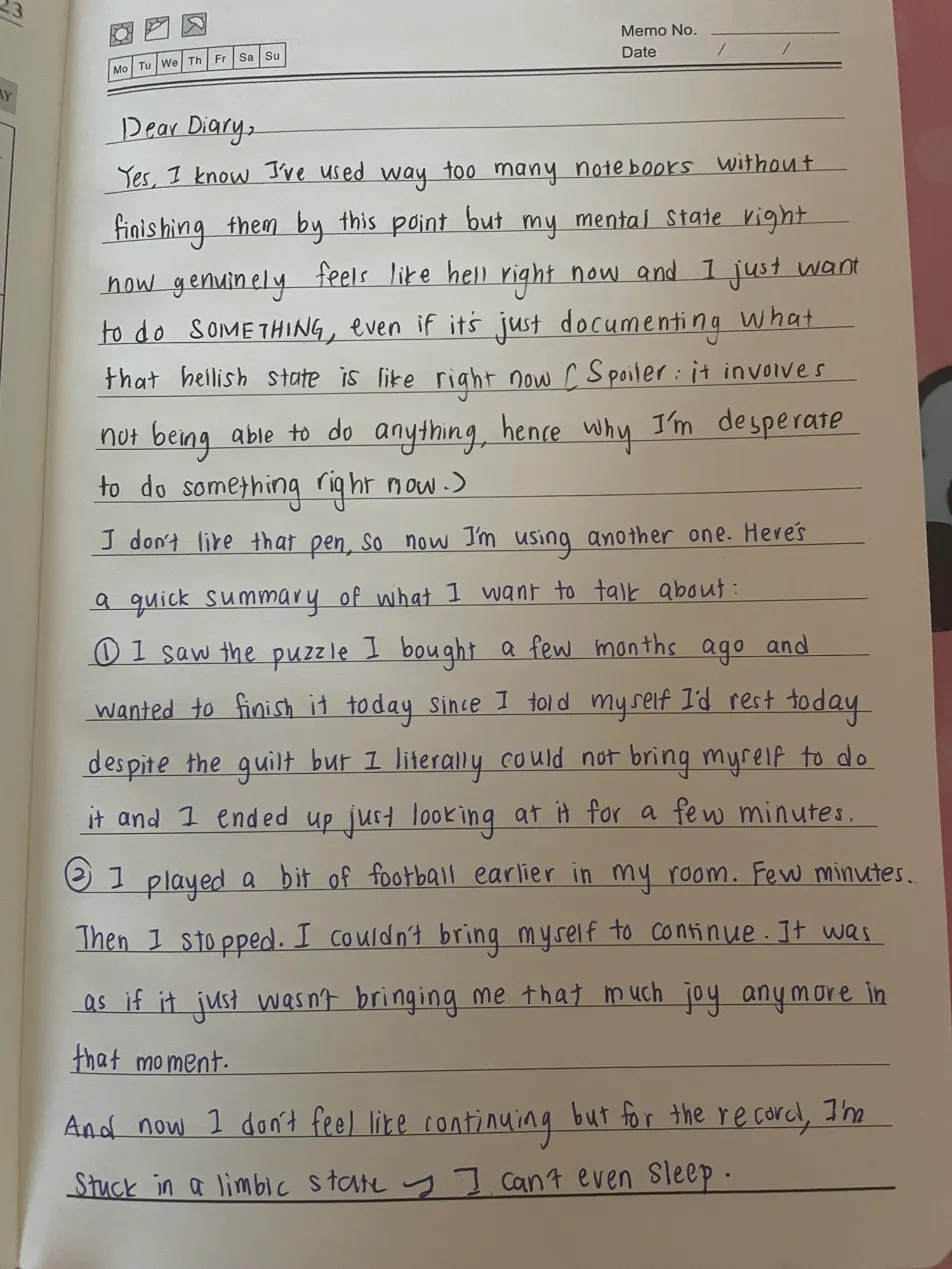 23
AY
Mo Tu We Th Fr Sa Su
Memo No.
Date / /
Dear Diary,
Yes, I know I've used way too many notebooks without
finishing them by this point but my mental state right
now genuinely feels like hell right now and I just want
to do SOMETHING, even if it's just documenting what
that hellish state is like right now (Spoiler: it involves
not being able to do anything, hence why I'm desperate
to do something right now.)
I don't like that pen, so now I'm using another one. Here's
a quick summary of what I want to talk about:
① I saw the puzzle I bought a few months ago and
wanted to finish it today since I told myself I'd rest today
despite the guilt but I literally could not bring myself to do
it and I ended up just looking at it for a few minutes.
② I played a bit of football earlier in my room. Few minutes.
Then I stopped. I couldn't bring myself to continue. It was
as if it just wasn't bringing me that much joy anymore in
that moment.
And now I don't feel like continuing but for the record, I'm
stuck in a limbic state → I can't even sleep.